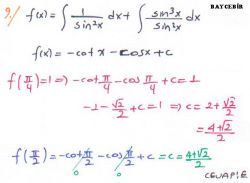 BAYCEBİR
9./ f(x) = ∫ 1/sin²x dx + ∫ sin³x/sin²x dx
f(x) = -cotx - cosx + c
f(π/4) = 1 ⇒ -cot π/4 - cos π/4 + c = 1
-1 - √2/2 + c = 1 ⇒ c = 2 + √2/2
= (4+√2)/2
f(π/2) = -cot π/2 - cos π/2 + c = c = (4+√2)/2
0 0
CEVAP: E